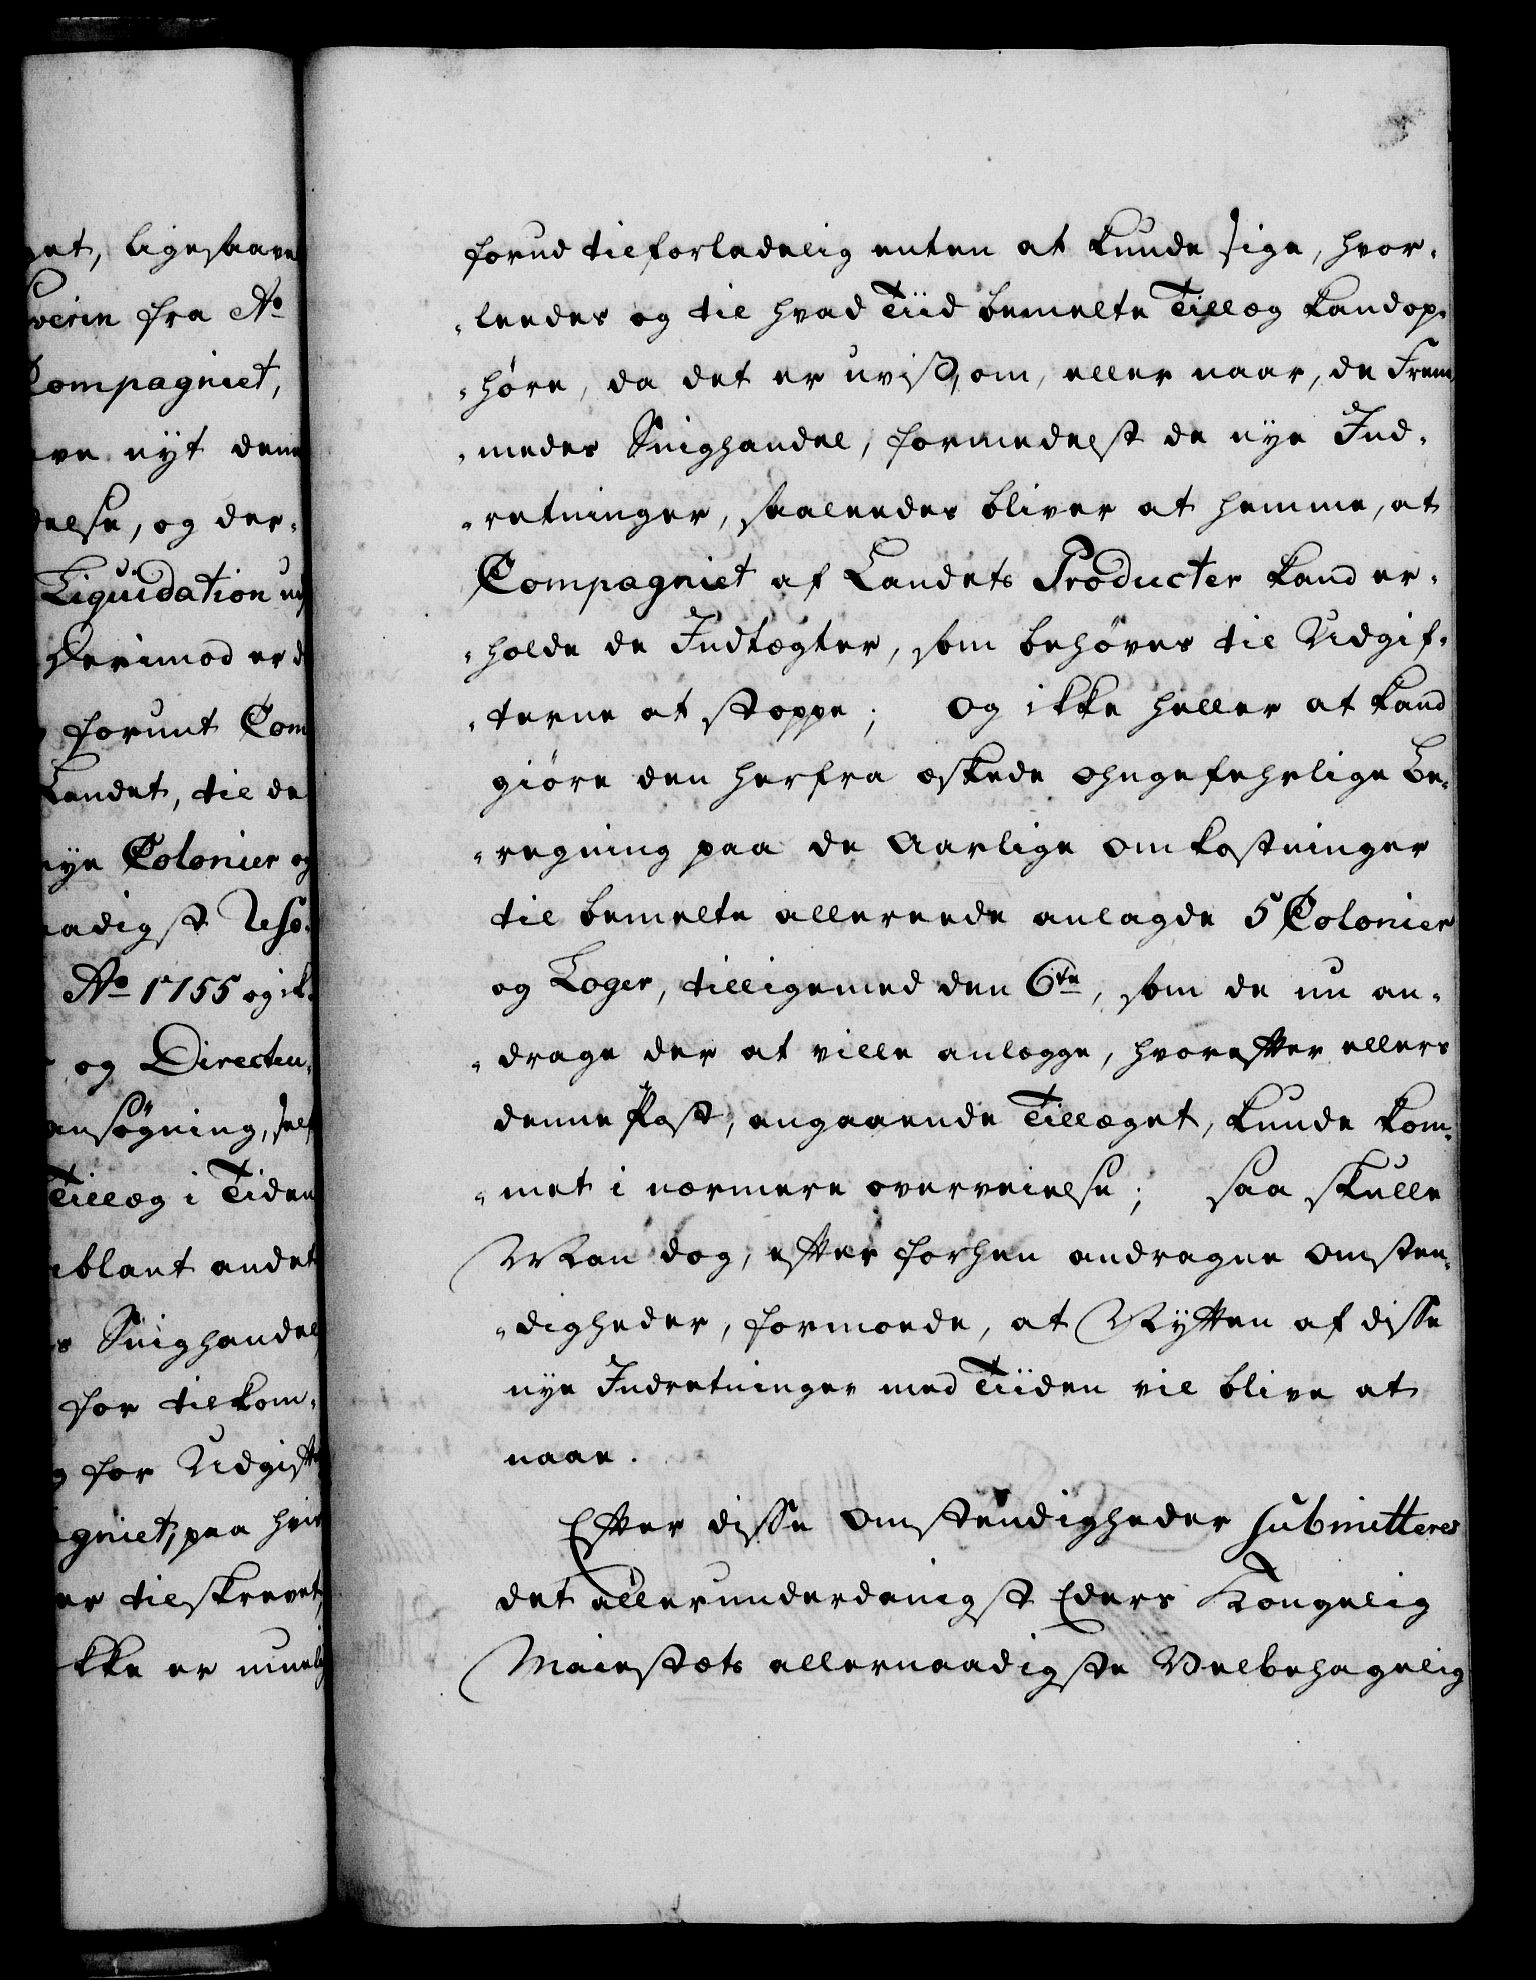 get, ligesaavel
verin fra Ao
Compagniet,
ve nyt denne
delse, og der-
Liquidation ud
Derimod er d
forunt Com
Landet, til de
nye Colonier og
aadigst Reso-
Ao 1755 og ik-
og Directeu-
ansøgning, self
Tillæg i Tiden
iblant andet
s Snighandel
for tilkom-
g for Udgifte
gniet, paa hvis
er tilskrevet,
kke er muelig
forud tilforladelig enten at kunde sige, hvor-
-ledes og til hvad Tiid bemelte Tillæg kand op-
-høre, da det er uvist, om, eller naar, de Frem
-medes Snighandel, formedelst de nye Ind-
-retninger, saaledes bliver at hemme, at
Compagniet af Landets Producter kand er-
-holde de Indtægter, som behøves til Udgif-
-terne at stoppe; og ikke heller at kand
giøre den herfra æskede ohngefehrlige Be-
-regning paa de Aarlige Omkostninger
til bemelte allereede anlagde 5 Colonier
og Loger, tilligemed den 6te, som de nu an-
-drage der at ville anlægge, hvorefter ellers
denne Post, angaaende Tillæget, kunde kom-
-met i nærmere overveielse; saa skulle
Man dog, efter forhen andragne Omsten-
-digheder, formoede, at Nytten af disse
nye Indretninger med Tiiden vil blive at
naae.
Efter disse Omstændigheder submitteres
det allerunderdanigst Eders Kongelig
Maiestæts allernaadigste Velbehagelig